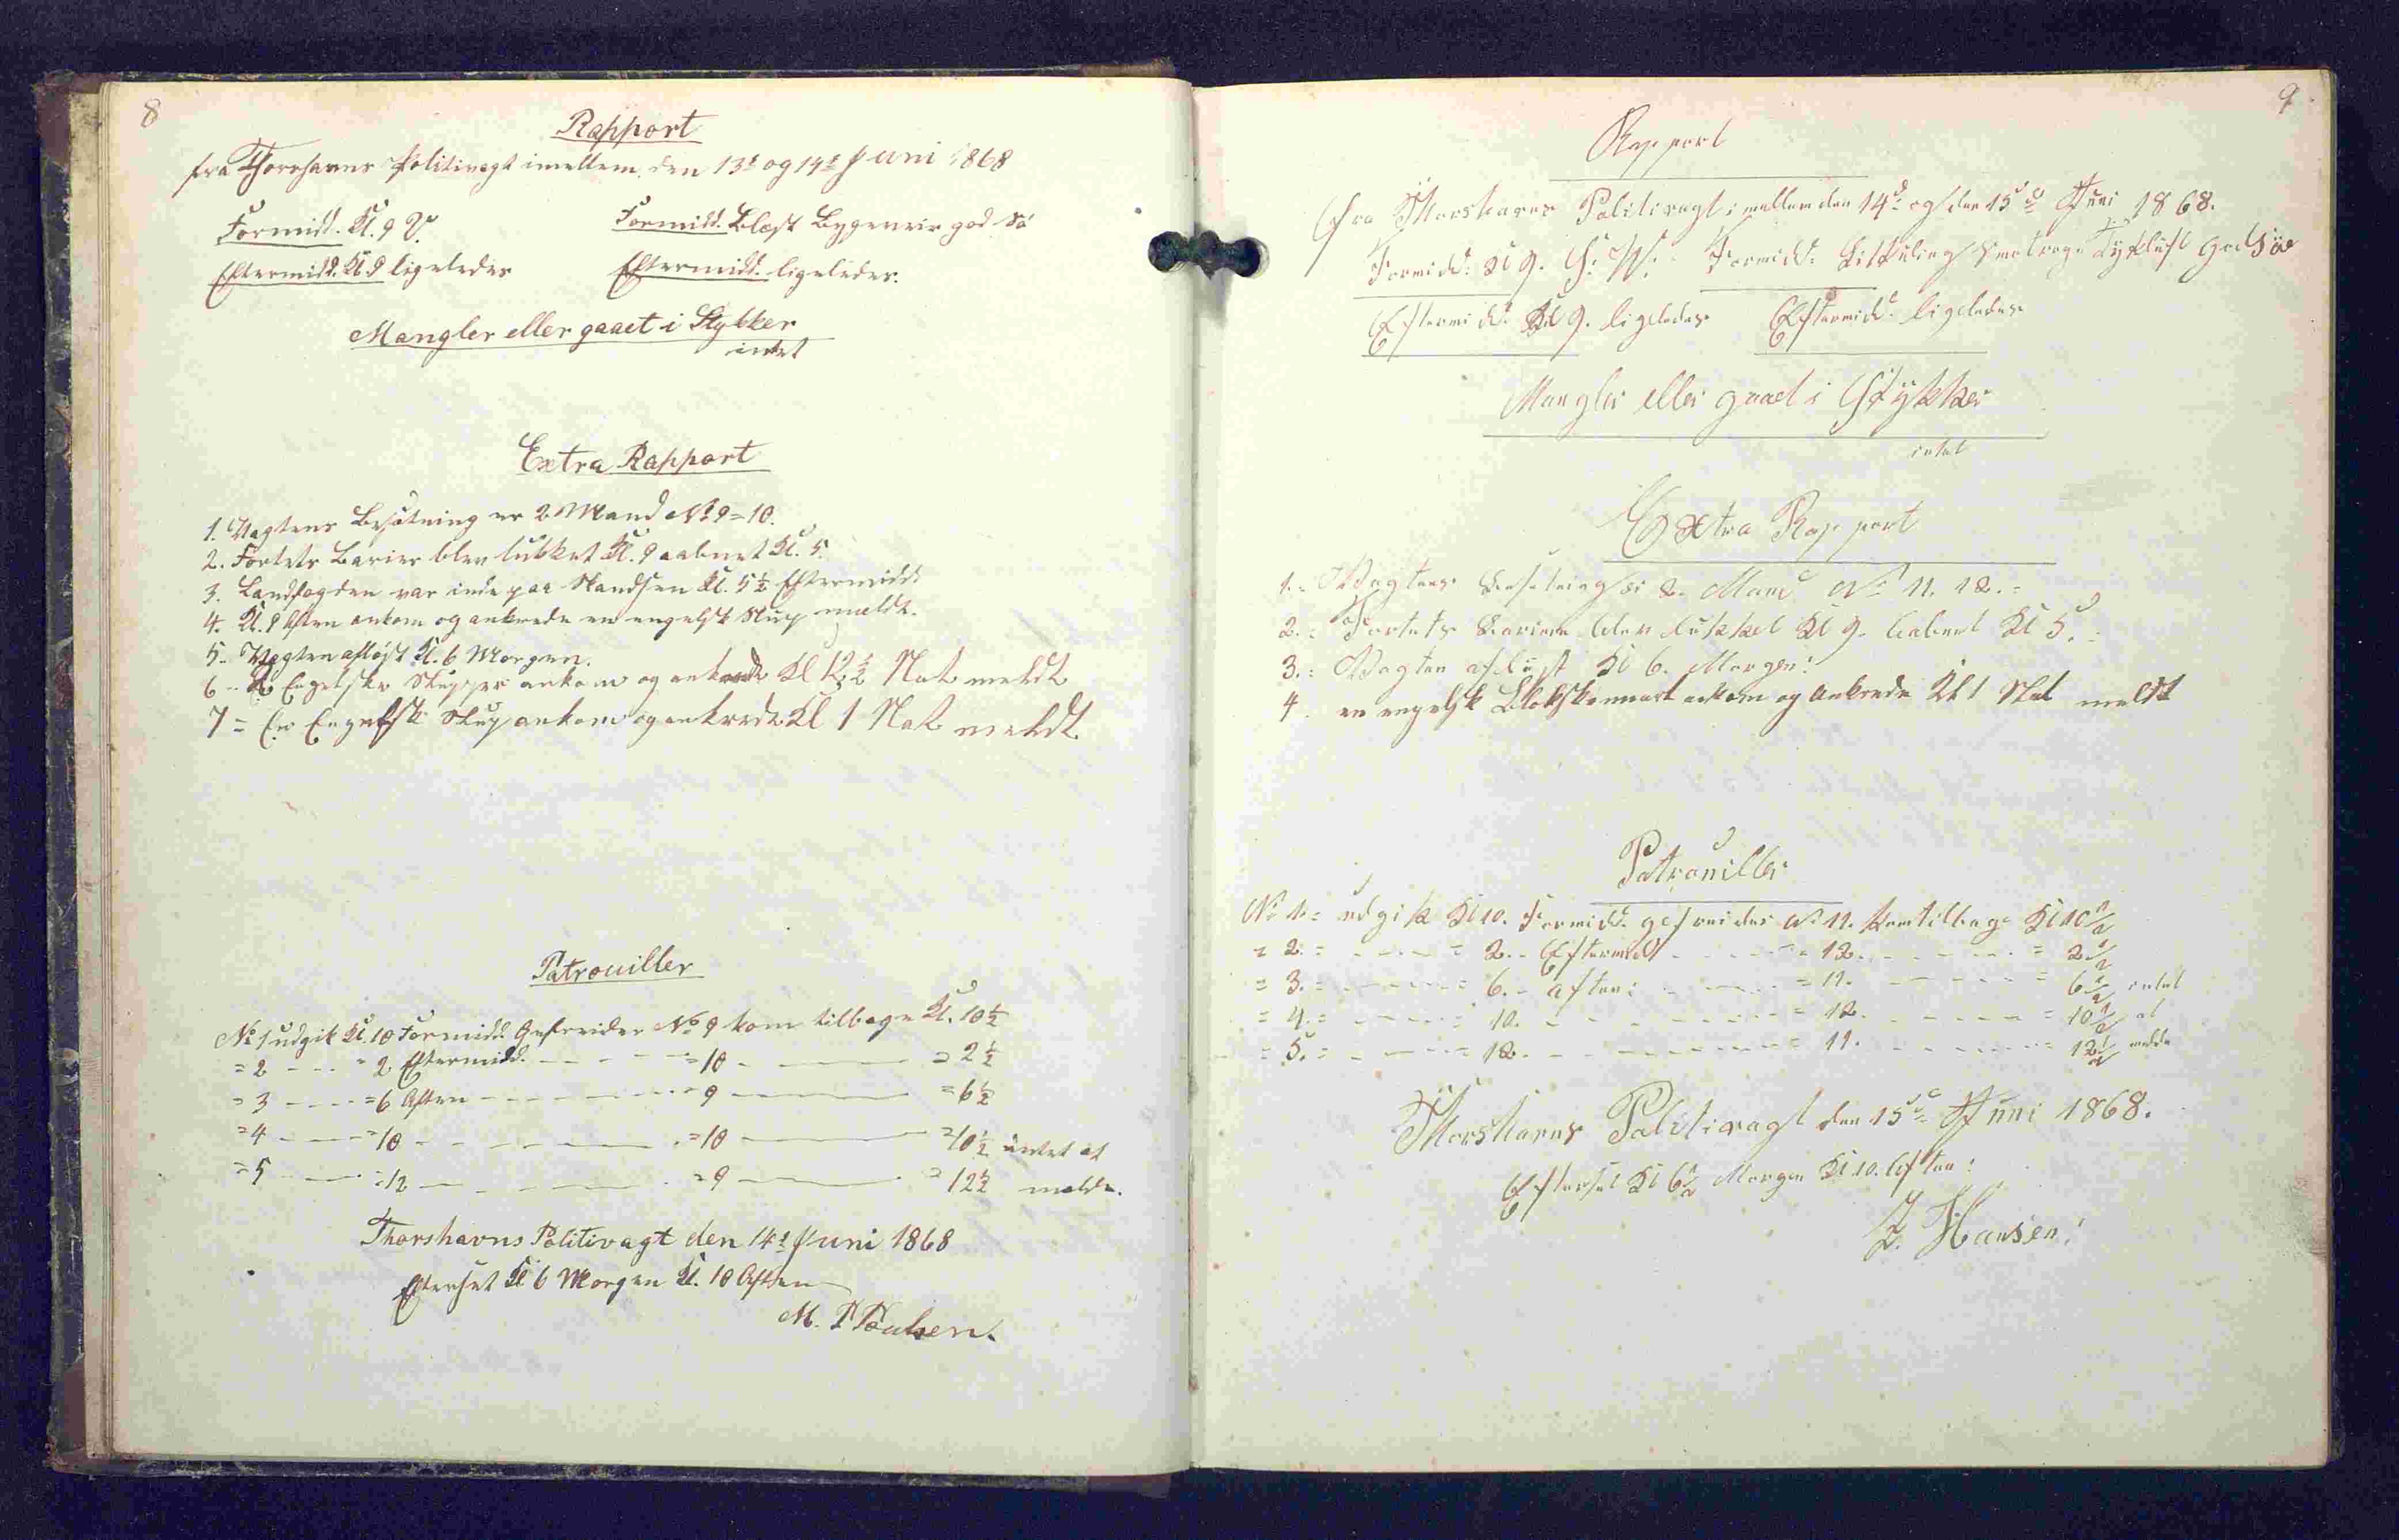 8
Rapport
fra Thorshavns Politivagt imellem den 13de og 14de Juni 1868
Formidd. Kl. 9 V. Formidd. Blæst Bygeveir god Sö
Eftermidd. Kl 9 ligeledes Eftermidd. ligeledes.
Mangler eller gaaet i Stykker
intet
Extra Rapport
1. Vagtens Besætning er 2 Mand No 9 = 10.
2. Fortets Barier blev lukket Kl. 9 aabnet Kl. 5.
3. Landfogden var inde paa Skandsen Kl. 5½ Eftermidd.
4. Kl. 9 Aften ankom og ankrede en engelsk Slup meldt.
5. Vagten afløst Kl. 6 Morgen.
6 - Engelske Slupper ankom og ankrede Kl 12½ Nat meldt
7 = En Engelsk Slup ankom og ankrede Kl 1 Nat meldt.
Patrouiller
No 1 udgik Kl. 10 Formidd. Gefreider No 9 kom tilbage Kl. 10½
= 2 - - - = 2 Eftermidd. - - - = 10 - — = 2½
= 3 - - - = 6 Aften - - - - = 9 — = 6½
= 4 - - - = 10 - - - = 10 — = 10½ intet at
= 5 - - - = 12 - - - = 9 — = 12½ melde.
Thorshavns Politivagt den 14de Juni 1868
Efterset Kl 6 Morgen Kl. 10 Aften
M. P Poulsen.
9
Rapport
fra Thorshavns Politivagt imellem den 14de og den 15de Juni 1868.
Formidd: Kl 9. S: W: Formidd: Kuling Smaa Tykluft god Söe
Eftermidd. Kl 9. ligeledes Eftermidd. ligeledes
Mangler eller gaaet i Stykker
intet
Extra Rapport
1. = Vagtens Besetning er 2. Mand No 11. 12. =
2. = Fortets Bariere blev lukket Kl 9. aabnet Kl 5. =
3. = Vagten aflöst Kl 6. Morgen:
4. en engelsk ankom og ankrede Kl 1 Nat meldt
Patrouiller
No 1. = udgik Kl 10. Formidd. gefreider No 11. kom tilbage Kl 10½
= 2. = - - - = 2. - Eftermidd - - - = 12. - - - = 2½
= 3. = - - - = 6. - aften: - - - = 11. - - - = 6½ intet
= 4. = - - - = 10. - - - = 12. - - - = 10½ at
= 5. = - - - = 12. - - - = 11. - - - = 12½ melde
Thorshavns Politivagt den 15de Juni 1868.
Efterset Kl 6½ Morgen Kl 10. Aften:
J. Hansen: